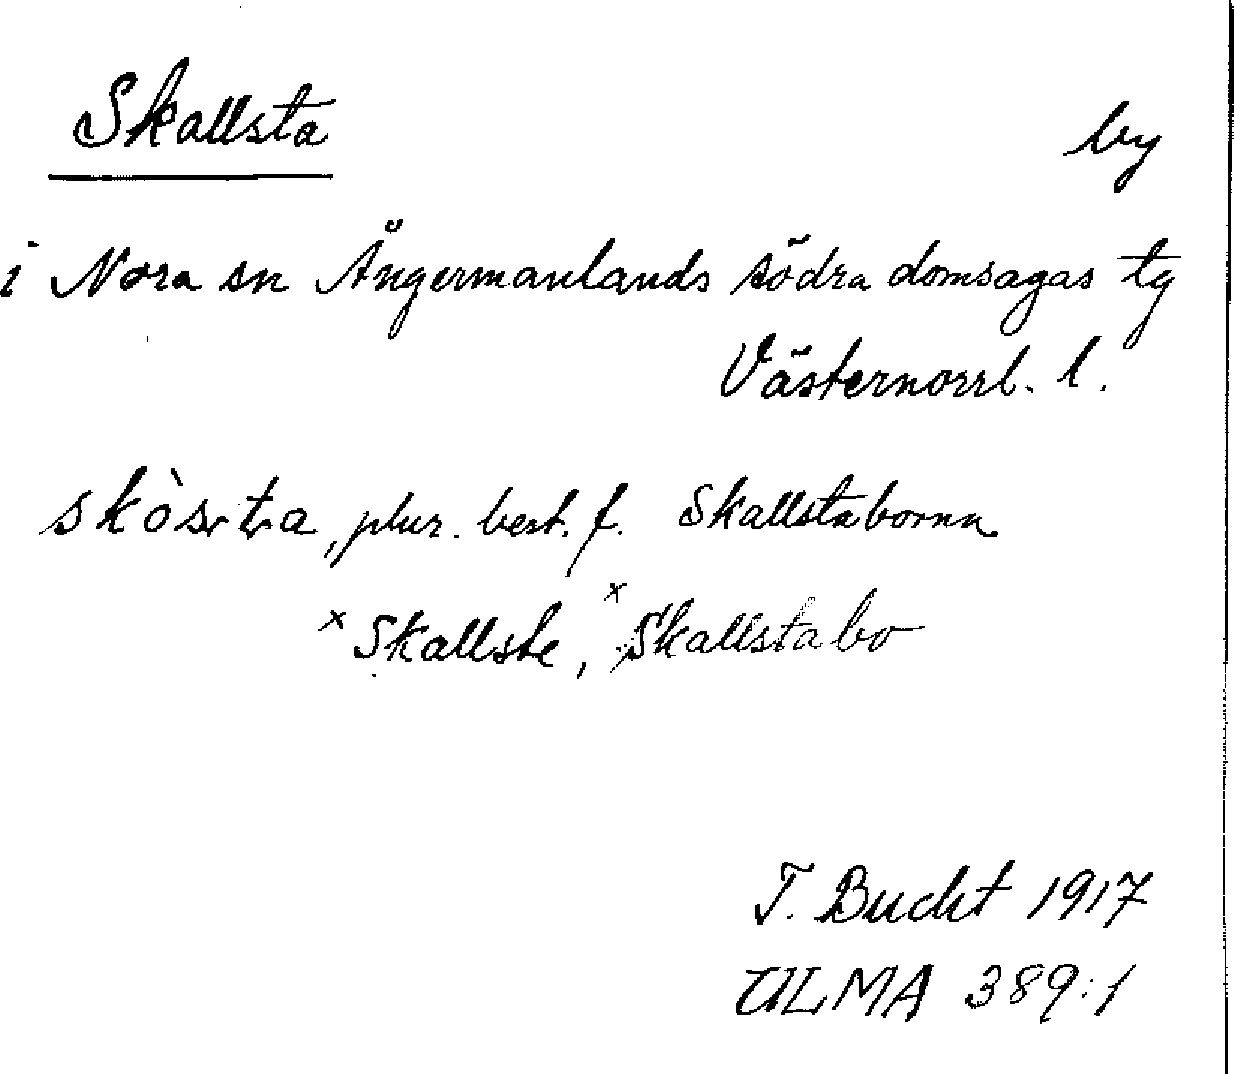 Skallsta by
i Nora sn Ångermanlands södra domsagas tg
Västernorrl. l.
skòsta, plur. best. f. Skallstaborna
x Skallste, x Skallstabo
T. Bucht 1917
ULMA 389:1